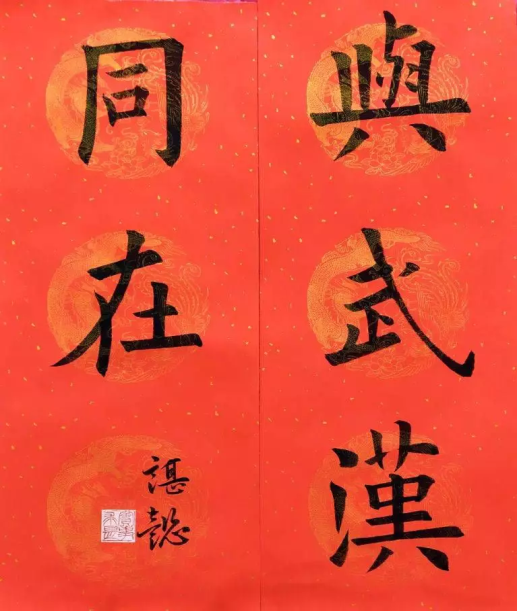 與武漢
同在
諶懿